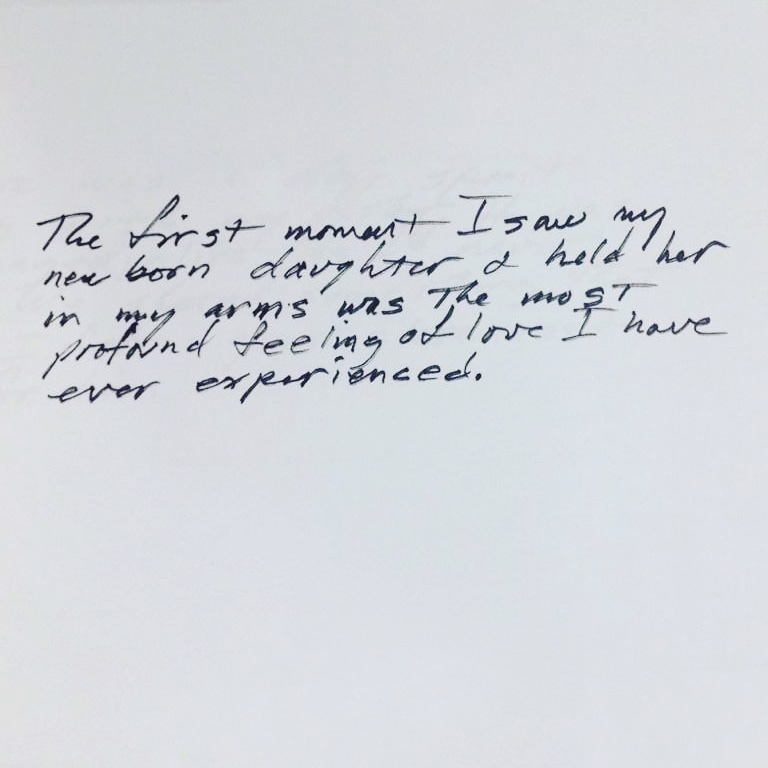 The first moment I saw my
new born daughter & held her
in my arms was The most
profound feeling of love I have
ever experienced.